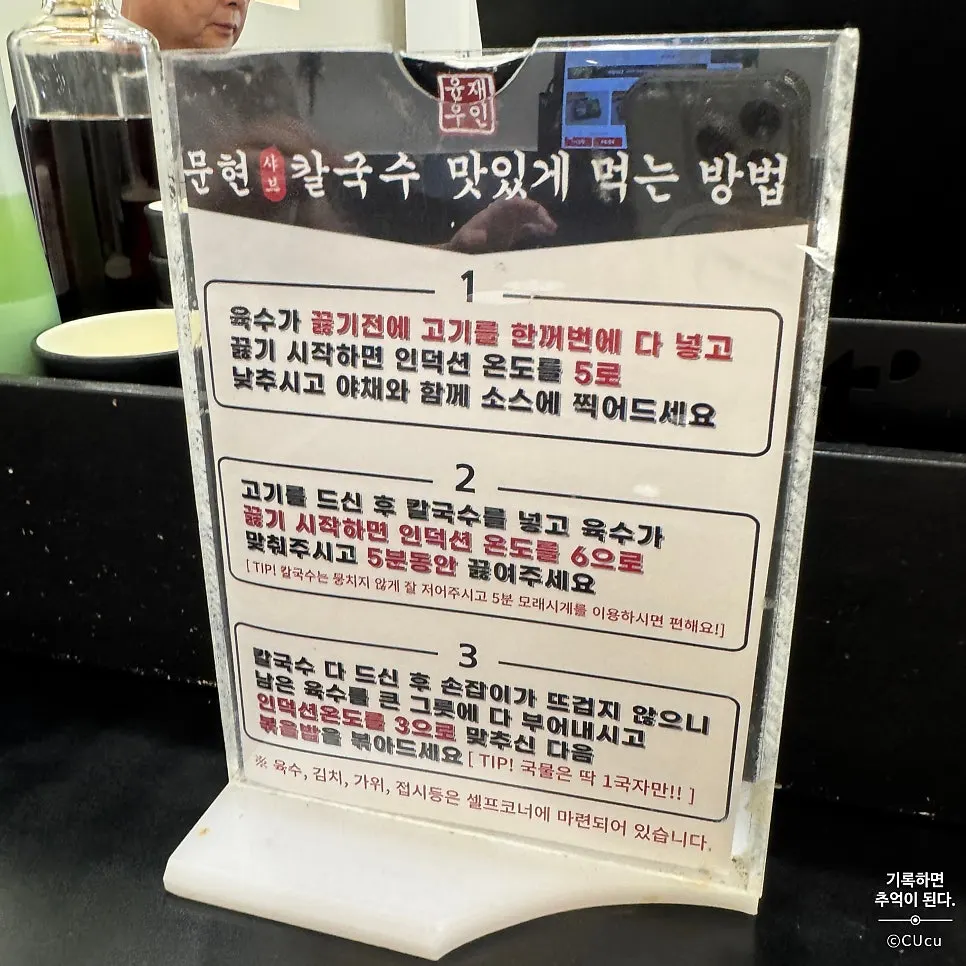 윤재
우인
문현 샤브 칼국수 맛있게 먹는 방법
1
육수가 끓기전에 고기를 한꺼번에 다 넣고
끓기 시작하면 인덕션 온도를 5로
낮추시고 야채와 함께 소스에 찍어드세요
2
고기를 드신 후 칼국수를 넣고 육수가
끓기 시작하면 인덕션 온도를 6으로
맞춰주시고 5분동안 끓여주세요
[ TIP! 칼국수는 뭉치지 않게 잘 저어주시고 5분 모래시계를 이용하시면 편해요!]
3
칼국수 다 드신 후 손잡이가 뜨겁지 않으니
남은 육수를 큰 그릇에 다 부어내시고
인덕션온도를 3으로 맞추신 다음
볶음밥을 볶아드세요 [ TIP! 국물은 딱 1국자만!! ]
※ 육수, 김치, 가위, 접시등은 셀프코너에 마련되어 있습니다.
기록하면
추억이 된다.
©CUcu